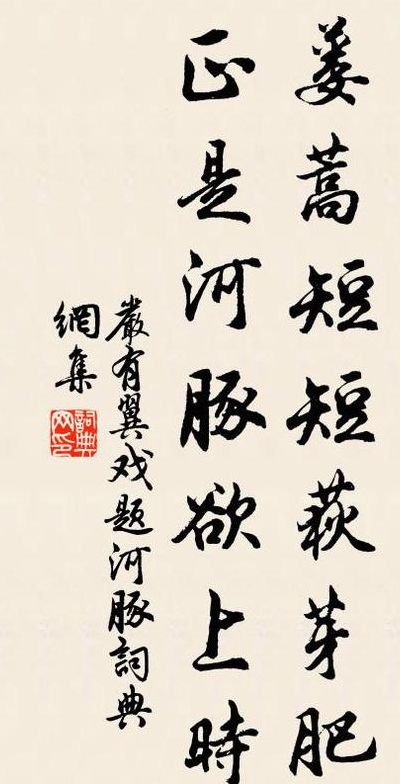 蒌蒿短短荻芽肥
正是河豚欲上時
嚴有翼戏题河豚詞典
網集
詞典
网印